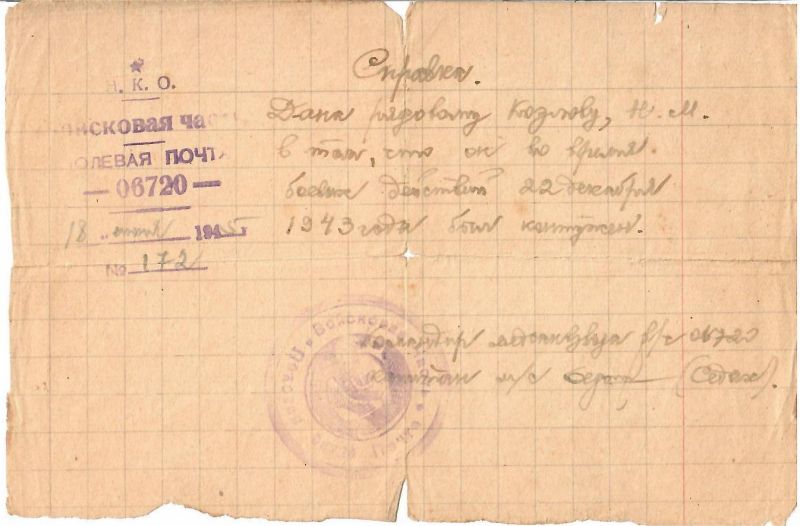 Н. К. О.
Войсковая часть
ПОЛЕВАЯ ПОЧТА
— 06720 —
18 июня 1945 г
№ 172
Справка.
Дана рядовому Козлову, Н. М.
в том, что он во время
боевых действий 22 декабря
1943 года был контужен.
Командир медсанвзвода в/ч 06720
капитан м/с (Седых).